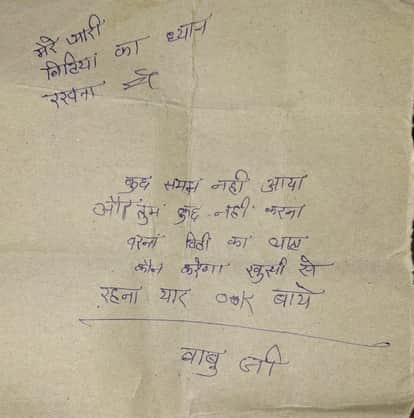 मेरे प्यारी
बिटिया का ध्यान
रखना
कुछ समझ नही आया
और तुम कुछ नही करना
वरना बिटी का ध्यान
कौन करेगा खुसी से
रहना यार ок बाये
बाबु जी